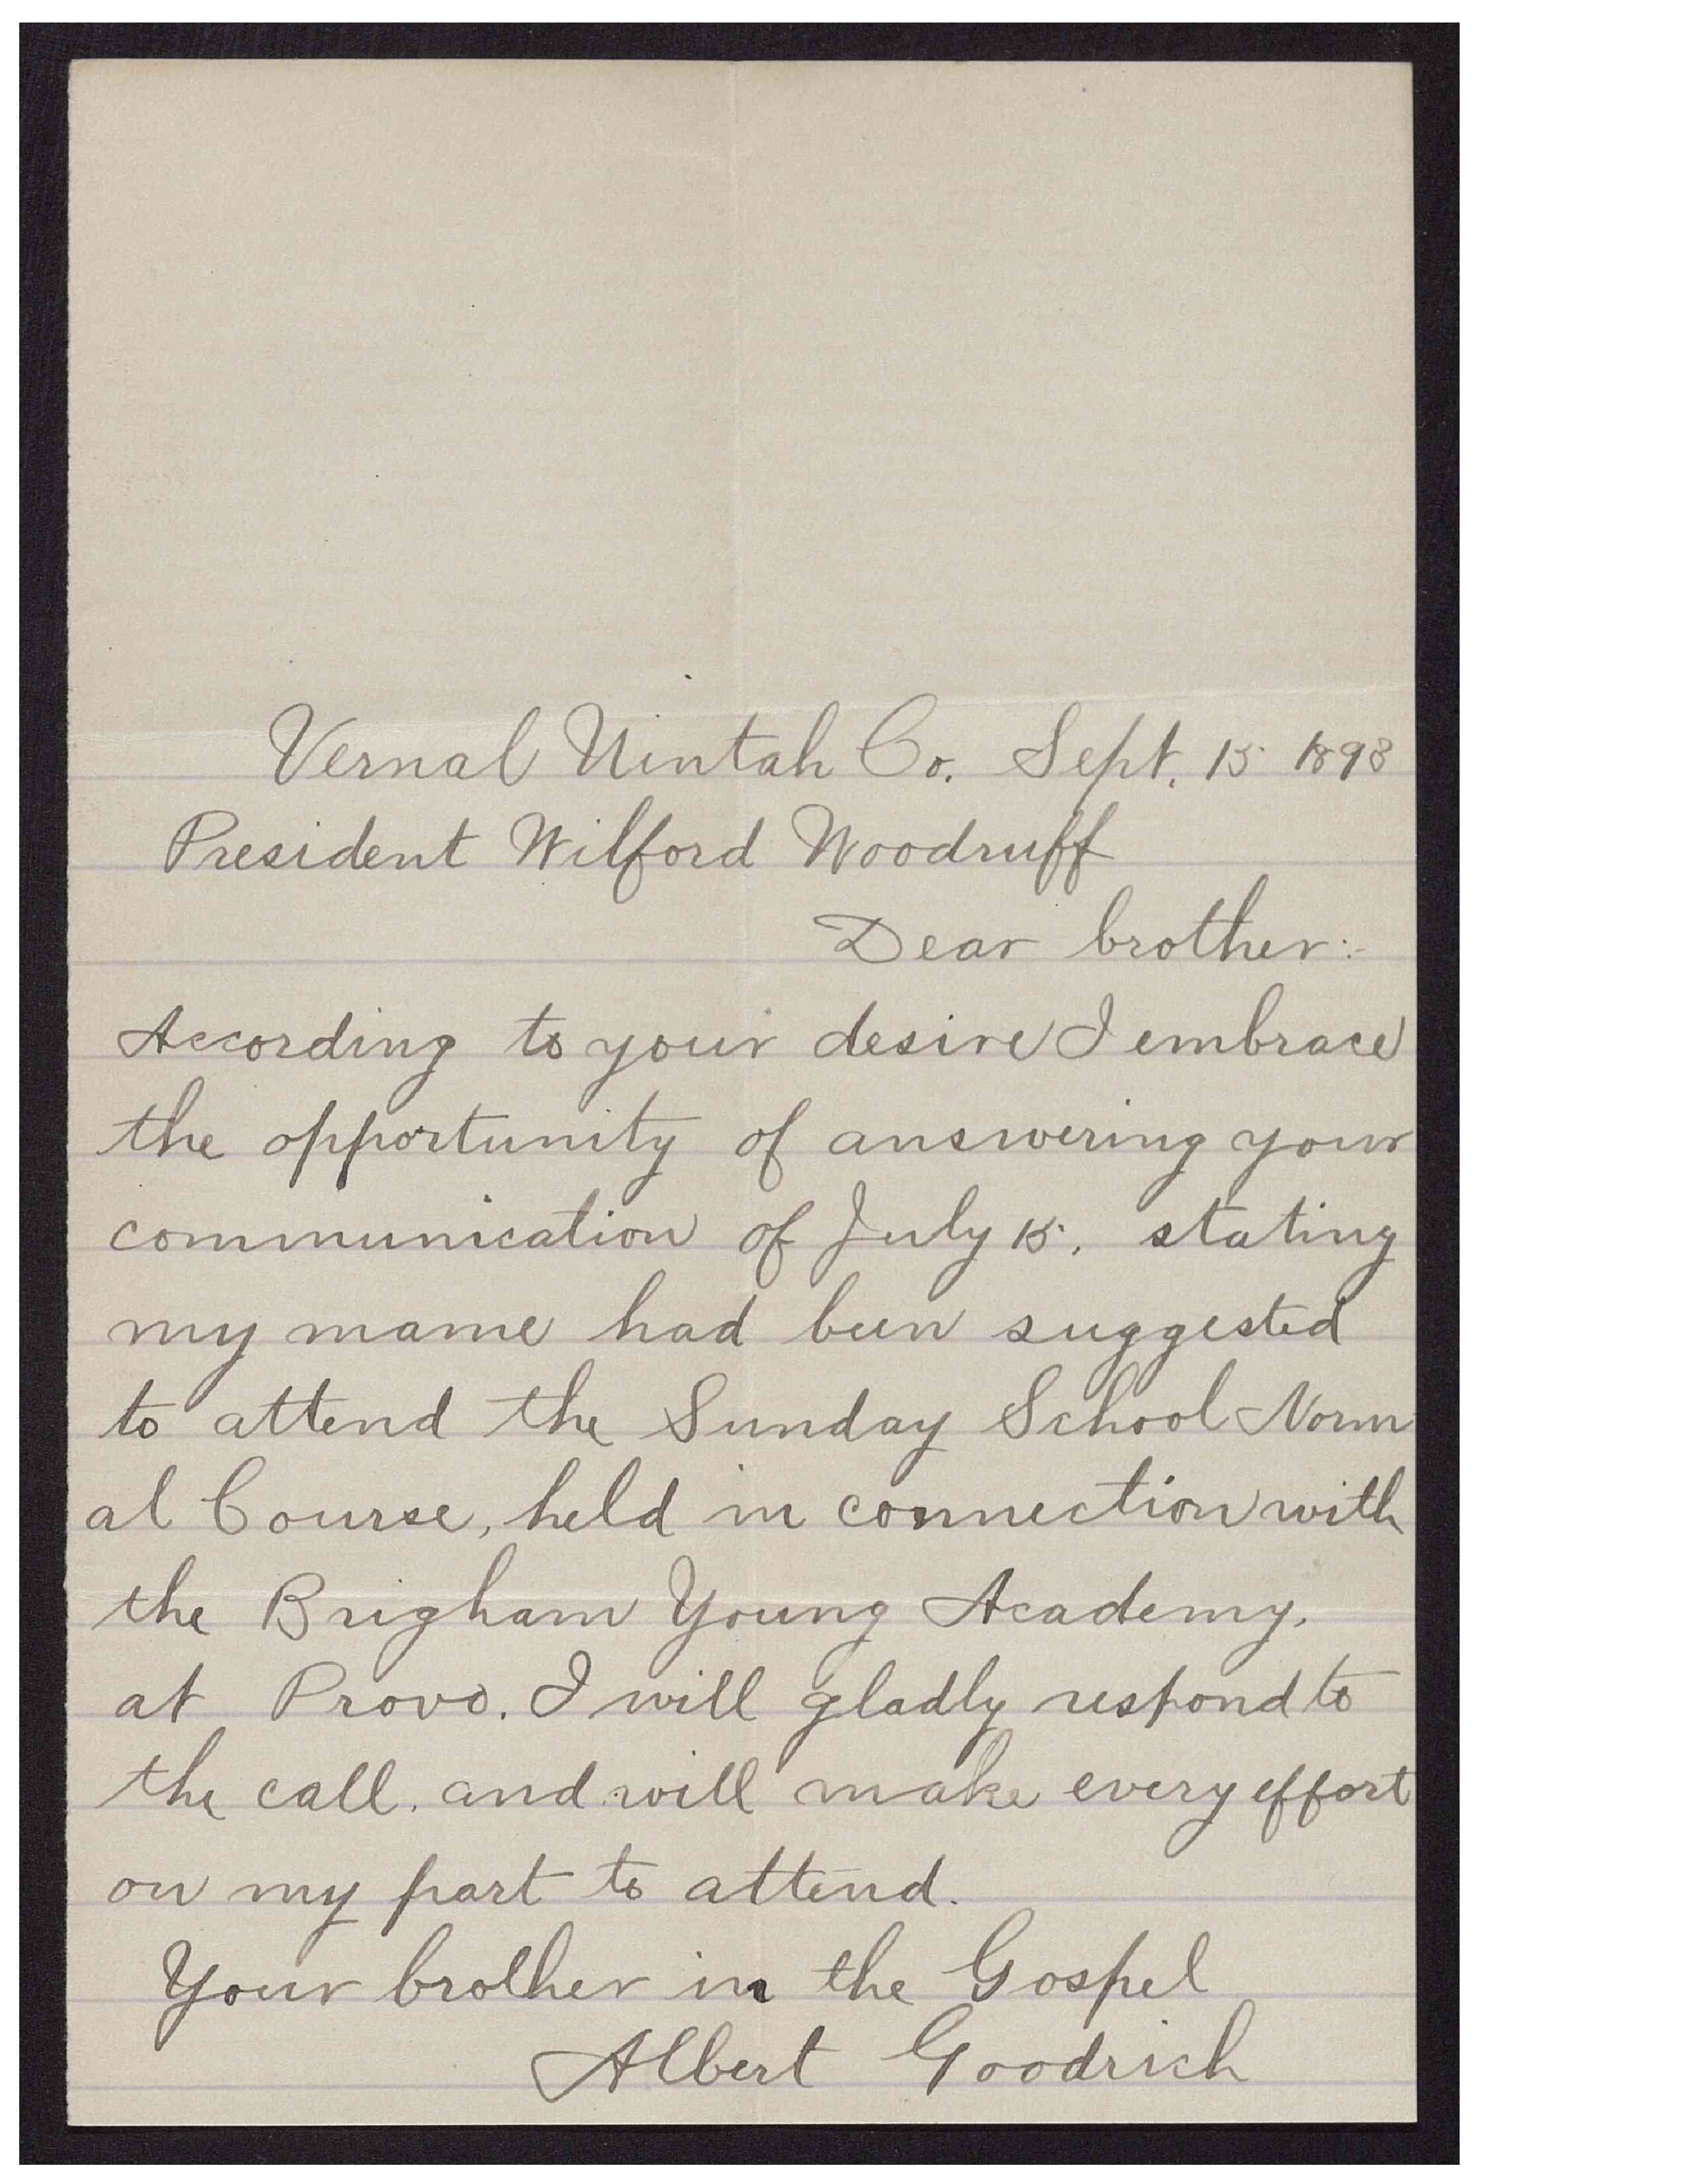 Vernal Uintah Co. Sept. 15 1893
President Wilford Woodruff
Dear brother:
According to your desire I embrace
the opportunity of answering your
communication of July 15. stating
my mame had been suggested
to attend the Sunday School Norm
al Course, held in connection with
the Brigham Young Academy,
at Provo. I will gladly respond to
the call. and will make every effort
on my part to attend.
Your brother in the Gospel
Albert Goodrich